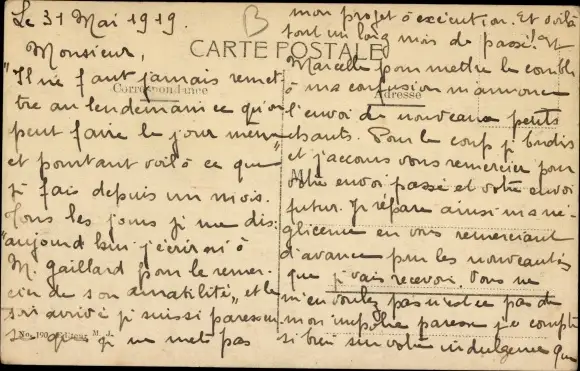 Le 31 Mai 1919.
B
CARTE POSTALE
Correspondance
Adresse
Monsieur,
"Il ne faut jamais remet-
tre au lendemain ce qu'on
peut faire le jour même"
et pourtant voilà ce que
je fais depuis un mois.
Tous les jours je me dis:
"aujourd'hui j'écrirai à
M. Gaillard pour le remer-
cier de son amabilité", et le
soir arrivé je suis si paresseu-
se que je ne mets pas
No. 190. Editeur M. J.
mon projet à exécution. Et voilà
tout un long mois de passé! Et
Marcelle pour mettre le comble
à ma confusion m'annonce
l'envoi de nouveaux petits
chants. Pour le coup je bondis
et j'accours vous remercier pour
votre envoi passé et votre envoi
futur. Je répare ainsi ma né-
gligence en vous remerciant
d'avance pour les nouveautés
que je vais recevoir. Vous ne
m'en voulez pas n'est-ce pas de
mon impolie paresse je compte
si bien sur votre indulgence que